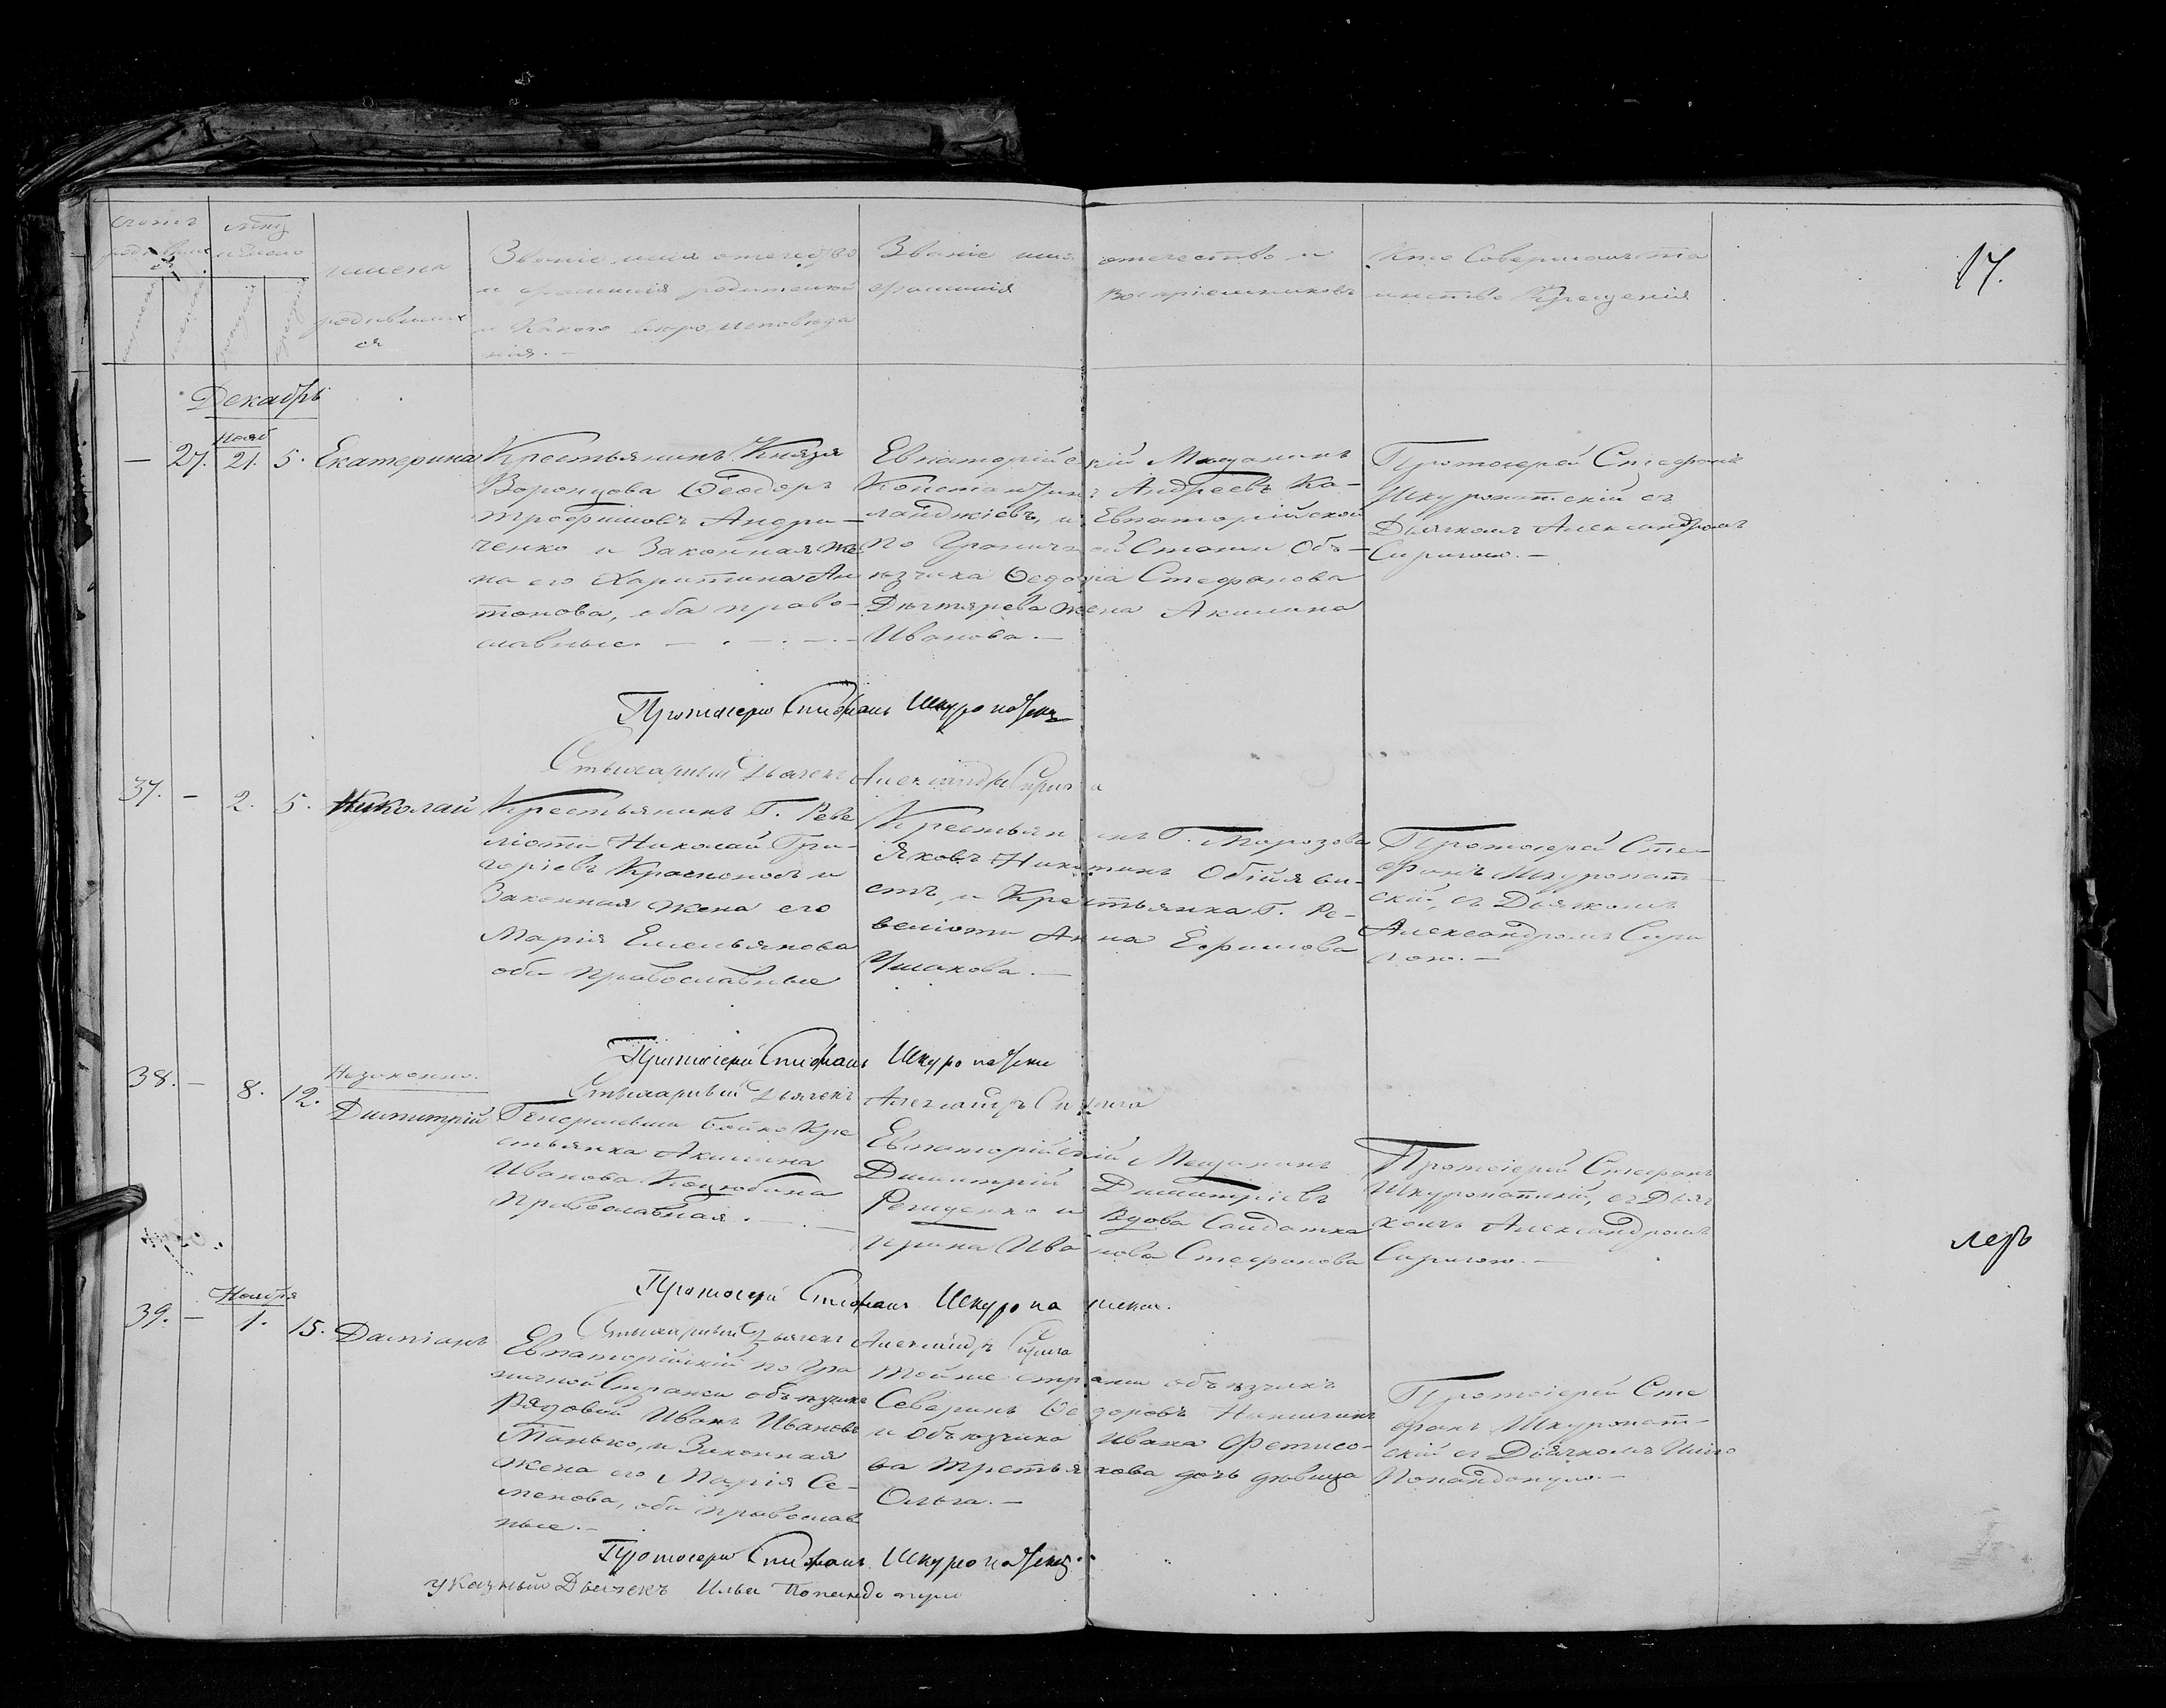 17.
Счетъ родившихся
Мѣц и число
имена родившихся
Званіе имя отечество
и фамилія родителей
и Какого вѣроисповѣда
нія. —
Званіе имя отечество и
фамилія воспріемниковъ
Кто Совершалъ та
инство Крещенія
Декабрь
— 27. Нояб 21. 5. Екатерина
Крестьянинъ Князя
Воронцова Ѳеодоръ
Трофимовъ Андрю-
ченко и Законная же
на его Харитина Ан
тонова, оба право-
славные. —
Евпаторійскій Мещанинъ
Константинъ Андреевъ Ка-
ланджіевъ, и Евпаторійской
по Граничной Стражи Объ-
ѣзчика Ѳедора Стефанова
Дѣхтярева жена Акилина
Иванова. —
Протоіерей Стефанъ
Шкуропатскій съ
Дьячкомъ Александромъ
Сиригою. —
Протоіерей Стефанъ Шкуропатскій
Стихарный Дьячекъ Александръ Сирига
37. — 2. 5. Николай
Крестьянинъ Г. Реве
ліоти Николай Гри-
горіевъ Красноновъ и
Законная жена его
Марія Емельянова
оба православные
Крестьянинъ Г. Морозова
Яковъ Никитинъ
и Крестьянка Г. Ре-
веліоти Анна Ефимова
Ушакова. —
Протоіерей Сте-
фанъ Шкуропат-
скій, съ Дьячкомъ
Александромъ Сири
гою. —
Протоіерей Стефанъ Шкуропатскій
Стихарный Дьячекъ Александръ Сирига
38. — 8. 12. Незаконно.
Димитрій
Генеральши Бойко Кре
стьянка Акилина
Иванова Коцюбина
православная. —
Евпаторійскій Мещанинъ
Димитрій Димитріевъ
Рещенко и вдова Солдатка
Ирина Иванова Стефанова
Протоіерей Стефанъ
Шкуропатскій, съ Дьяч
комъ Александромъ
Сиригою. —
Протоіерей Стефанъ Шкуропатскій
Стихарный Дьячекъ Александръ Сирига
39. — Ноября 1. 15. Даміанъ
Евпаторійскій по Гра
ничной Стражи объѣзчикъ
Рядовой Иванъ Ивановъ
Танько, и Законная
жена его Марія Се-
менова, оба православ
ные. —
Тойже стражи объѣзчикъ
Северинъ Ѳедоровъ
и объѣзчика Ивана Фетисо-
ва Третьякова дочь дѣвица
Ольга. —
Протоіерей Сте
фанъ Шкуропат-
скій съ Дьячкомъ Иліею
Попандопуло —
Протоіерей Стефанъ Шкуропатскій
указный Дьячекъ Илья Попандопуло